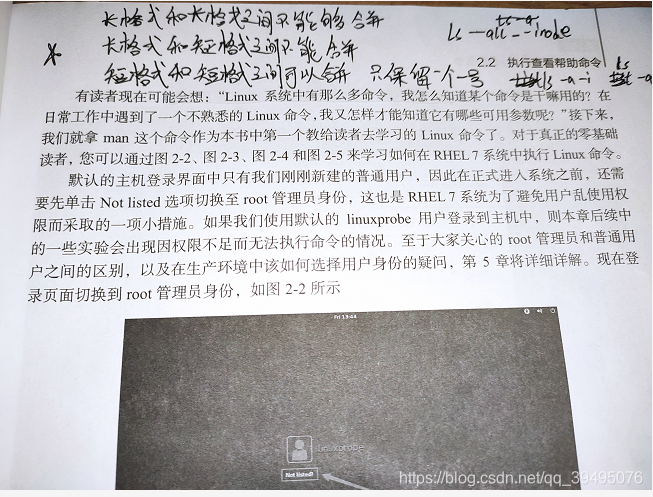 长格式和长格式之间不能够合并
长格式和短格式之间不能合并
短格式和短格式之间可以合并 只保留一个-号
ls --all --inode
ls -a -i
2.2 执行查看帮助命令
有读者现在可能会想：“Linux 系统中有那么多命令，我怎么知道某个命令是干嘛用的？在
日常工作中遇到了一个不熟悉的 Linux 命令，我又怎样才能知道它有哪些可用参数呢？”接下来，
我们就拿 man 这个命令作为本书中第一个教给读者去学习的 Linux 命令了。对于真正的零基础
读者，您可以通过图 2-2、图 2-3、图 2-4 和图 2-5 来学习如何在 RHEL 7 系统中执行 Linux 命令。
默认的主机登录界面中只有我们刚刚新建的普通用户，因此在正式进入系统之前，还需
要先单击 Not listed 选项切换至 root 管理员身份，这也是 RHEL 7 系统为了避免用户乱使用权
限而采取的一项小措施。如果我们使用默认的 linuxprobe 用户登录到主机中，则本章后续中
的一些实验会出现因权限不足而无法执行命令的情况。至于大家关心的 root 管理员和普通用
户之间的区别，以及在生产环境中该如何选择用户身份的疑问，第 5 章将详细详解。现在登
录页面切换到 root 管理员身份，如图 2-2 所示
Fri 13:44
linuxprobe
Not listed?
https://blog.csdn.net/qq_39495076